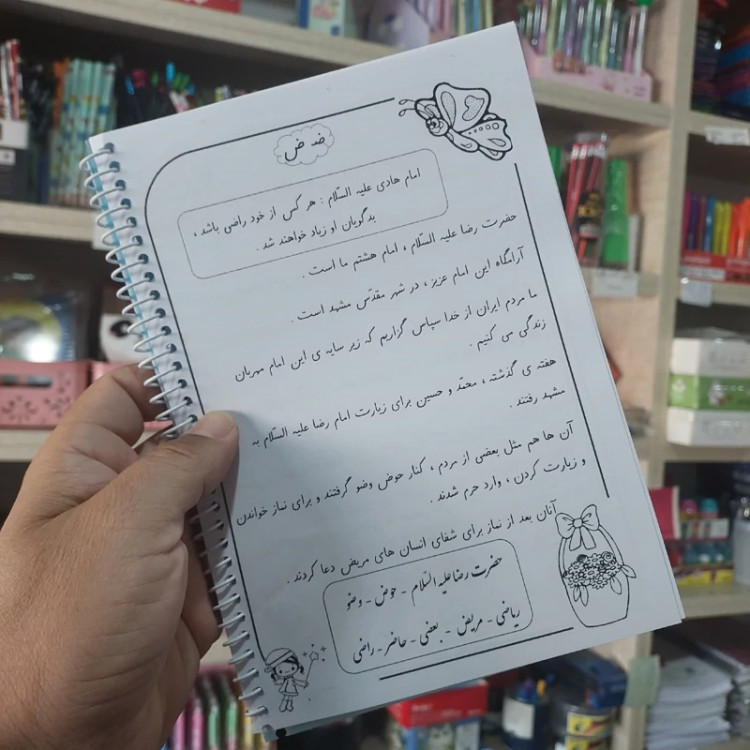 ضـ ض
امام هادی علیه السّلام : هر کس از خود راضی باشد ،
بدگویان او زیاد خواهند شد .
حضرت رضا علیه السّلام ، امام هشتم ما است .
آرامگاه این امام عزیز ، در شهر مقدّس مشهد است .
ما مردم ایران از خدا سپاس گزاریم که زیر سایه ی این امام مهربان
زندگی می کنیم .
هفته ی گذشته ، محمّد و حسین برای زیارت امام رضا علیه السّلام به
مشهد رفتند .
آن ها هم مثل بعضی از مردم ، کنار حوض وضو گرفتند و برای نماز خواندن
و زیارت کردن ، وارد حرم شدند .
آنان بعد از نماز برای شفای انسان های مریض دعا کردند .
حضرت رضا علیه السّلام - حوض - وضو
ریاضی - مریض - بعضی - حاضر - راضی